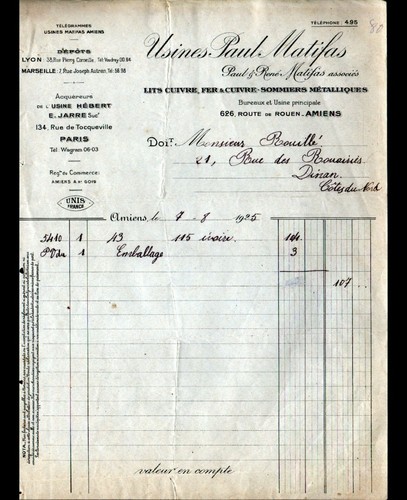 TÉLÉGRAMMES
USINES MATIFAS AMIENS
TÉLÉPHONE 4.95
DÉPÔTS
LYON 38, Rue Pierre Corneille, Tél. Vaudrey 00.84
MARSEILLE 7, Rue Joseph Autran
Acquéreurs
DE L'USINE HÉBERT
E. JARRE Sucr
134, Rue de Tocqueville
PARIS
Tél. Wagram 06-03
Reg. du Commerce:
AMIENS A
UNIS
FRANCE
Usines Paul Matifas
Paul & René Matifas associés
LITS CUIVRE, FER & CUIVRE - SOMMIERS MÉTALLIQUES
Bureaux et Usine principale
626, ROUTE DE ROUEN. AMIENS
Doit Monsieur Rouillé
21, Rue des Rouairies
Dinan
Côtes du Nord
Amiens, le 7-8 1925
5410 1 43 115 ivoire 104
1 Emballage 3
107
valeur en compte